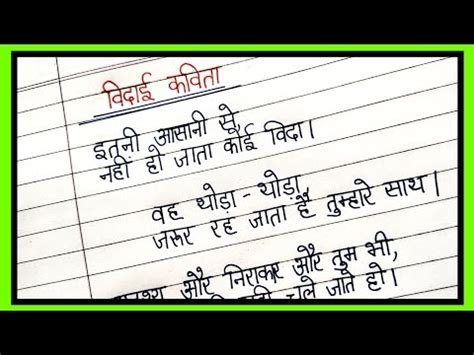 विदाई कविता
इतनी आसानी से
नहीं हो जाता कोई विदा।
वह थोड़ा - थोड़ा
जरूर रह जाता है तुम्हारे साथ।
और निराकार और तुम भी,
चले जाते हो।